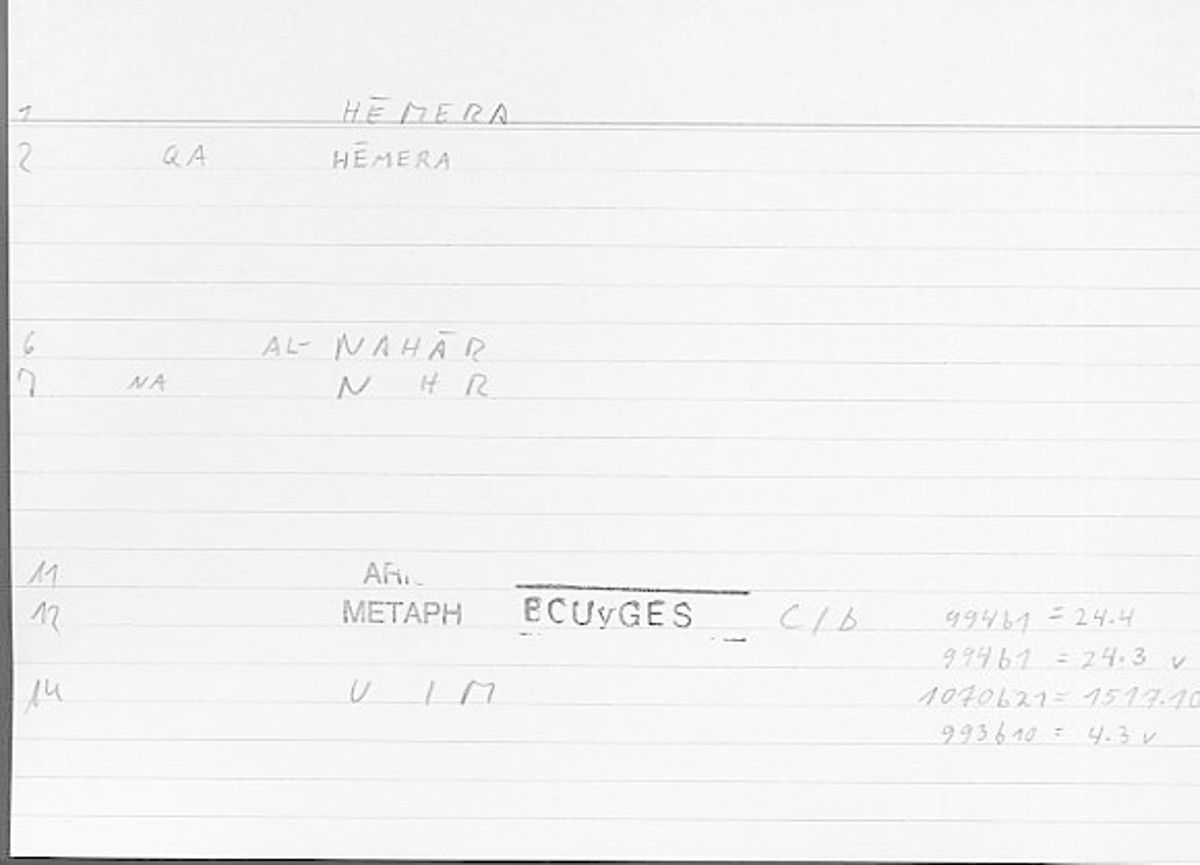 1 HĒMERA
2 QA HĒMERA
6 AL- NAHĀR
7 NA N H R
11 AR.
12 METAPH C/b 994b1 = 24.4
994b1 = 24.3 v
14 U I M 1070b21 = 1517.10
993b10 = 4.3 v